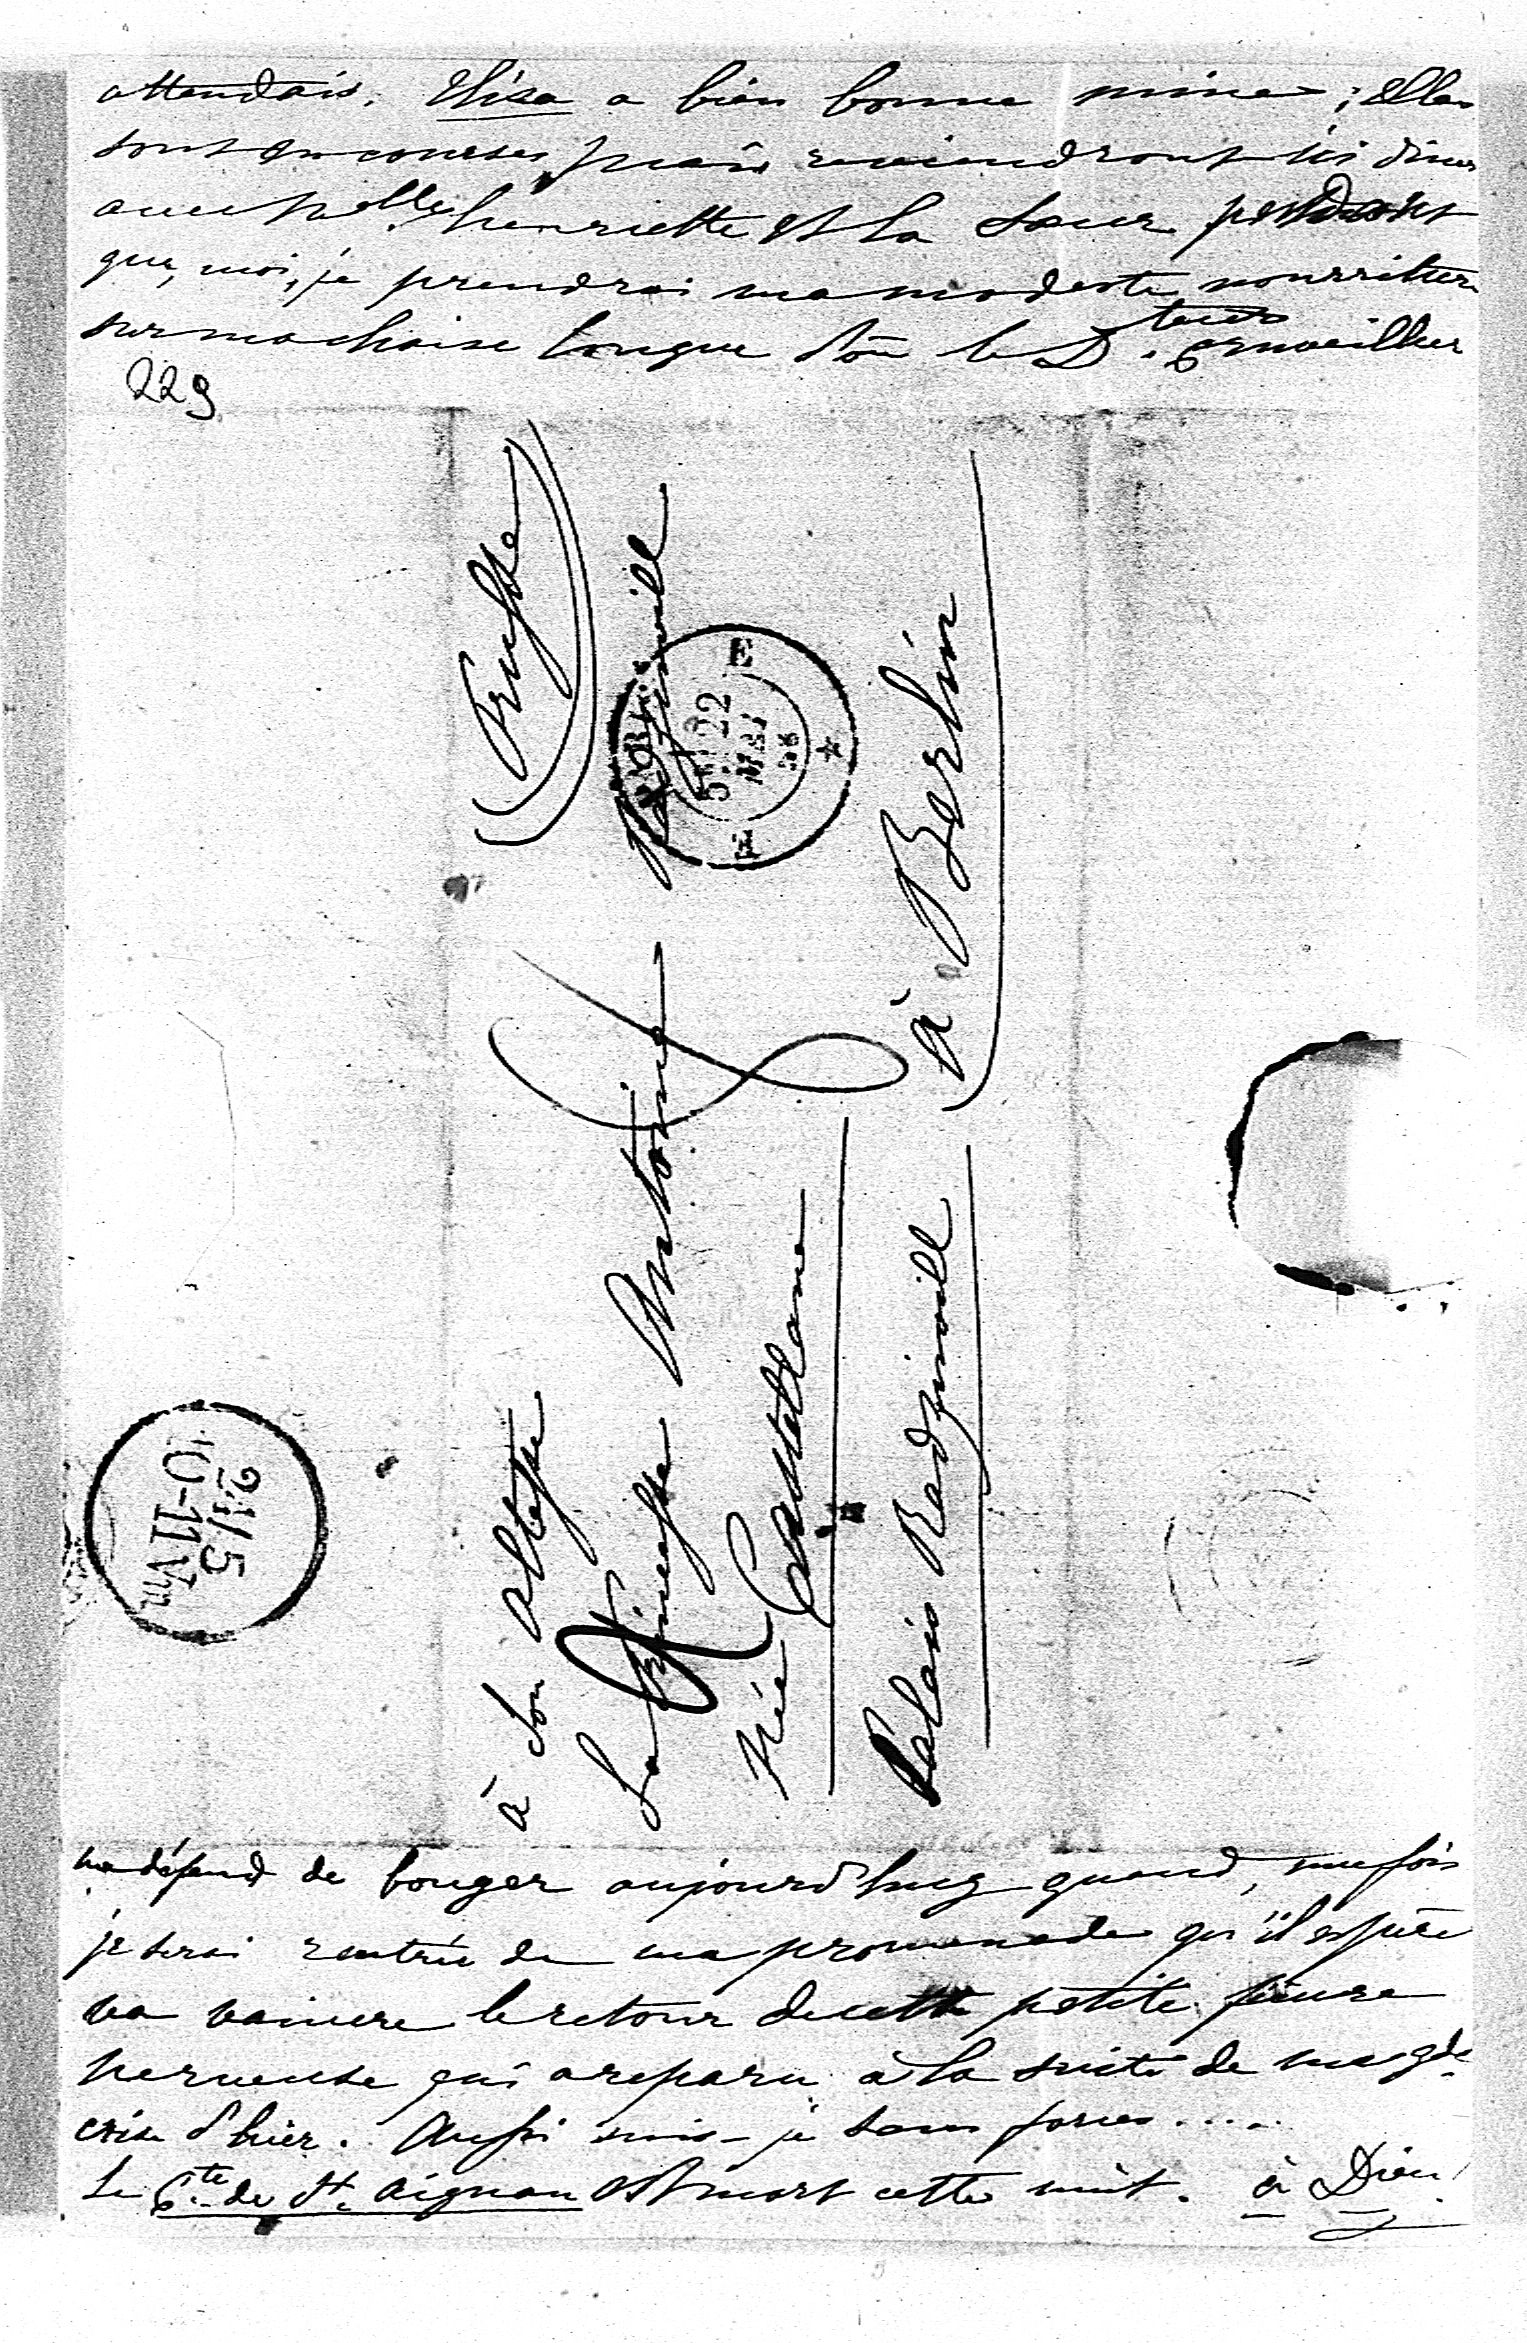 attendais. Élisa a bien bonne mine ; elles
sont en courses, mais reviendront ici dîner
avec Melle henriette et la Sœur pendant
que, moi, je prendrai ma modeste nourriture
sur ma chaise longue d'où le Dteur Cruveilher
229
(Prusse)
à Son Altesse
La Princesse Antoine Radziwill
née Castellane
Palais Radziwill
à Berlin
5E 22
MAI
58
24/5
10-11 Vm
me défend de bouger aujourd'huy quand, une fois
je serai rentrée de ma promenade qu'il espère
va vaincre le retour de cette petite fièvre
nerveuse qui a reparu à la suite de ma gde
crise d'hier. Aussi suis-je sans forces....
Le Cte de St. Aignan est mort cette nuit. à Dieu !